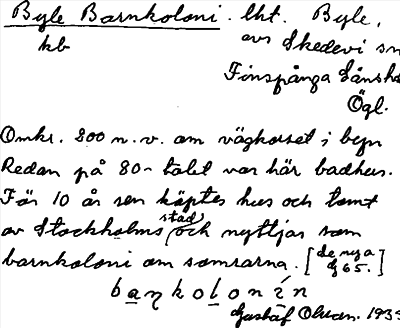 Byle Barnkoloni. lht. Byle,
kb avs Skedevi sn
Finspånga länshd
Ögl.
Omkr. 800 n.v. om vägkorset i byn
Redan på 80-talet var här badhus.
För 10 år sen köptes hus och tomt
av Stockholms stad och nyttjas som
barnkoloni om somrarna. [de nya g 65.]
Gustaf Olsson. 193